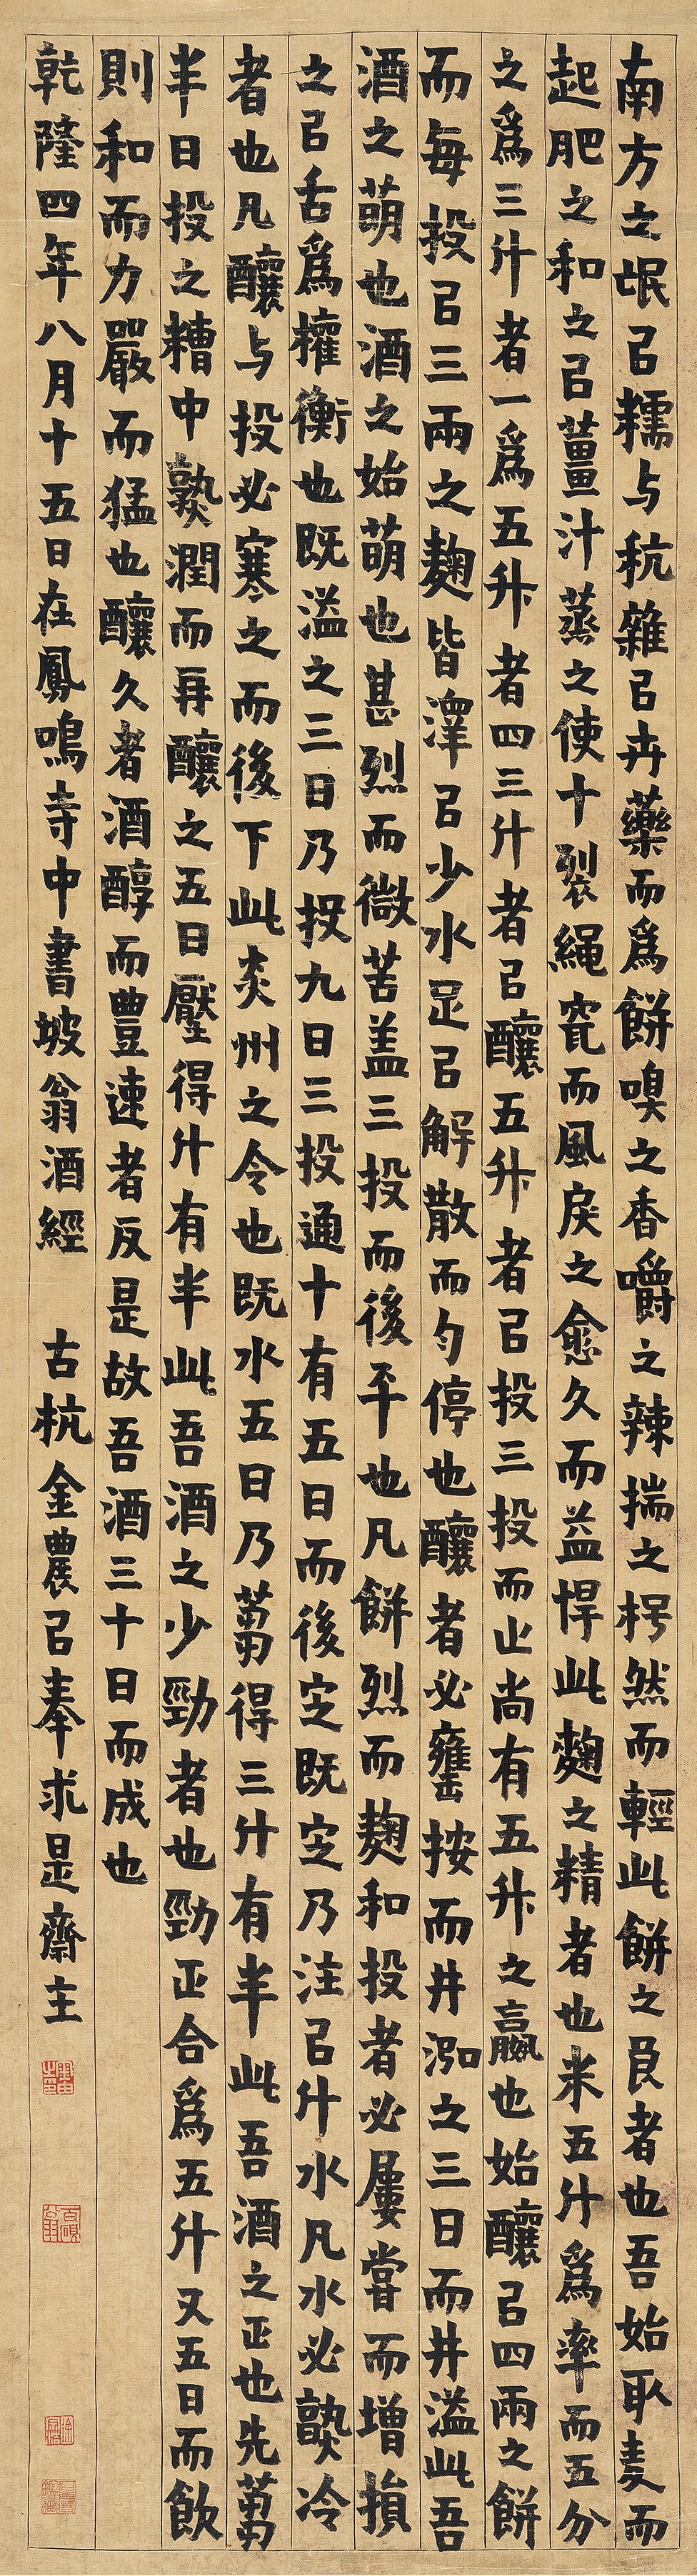 南方之氓㠯糯与秔雜㠯卉藥而爲餅嗅之香嚼之辣揣之枵然而輕此餅之良者也吾始取麦而
起肥之和之㠯薑汁蒸之使十裂繩穿而風戾之愈久而益悍此麹之精者也米五斗爲率而五分
之爲三斗者一爲五升者四三斗者㠯釀五升者㠯投三投而止尚有五升之贏也始釀㠯四兩之餅
而每投㠯三兩之麹皆澤㠯少水足㠯解散而勻停也釀者必甕按而井泓之三日而井溢此吾
酒之萌也酒之始萌也甚烈而微苦盖三投而後平也凡餅烈而麹和投者必屢嘗而增損
之㠯舌爲權衡也既溢之三日乃投九日三投通十有五日而後定既定乃注㠯斗水凡水必熟冷
者也凡釀与投必寒之而後下此炎州之令也既水五日乃篘得三斗有半此吾酒之正也先篘
半日投之糟中熟潤而再釀之五日壓得斗有半此吾酒之少勁者也勁正合爲五斗又五日而飲
則和而力嚴而猛也釀久者酒醇而豊速者反是故吾酒三十日而成也
乾隆四年八月十五日在鳳鳴寺中書坡翁酒經 古杭金農㠯奉求是齋主